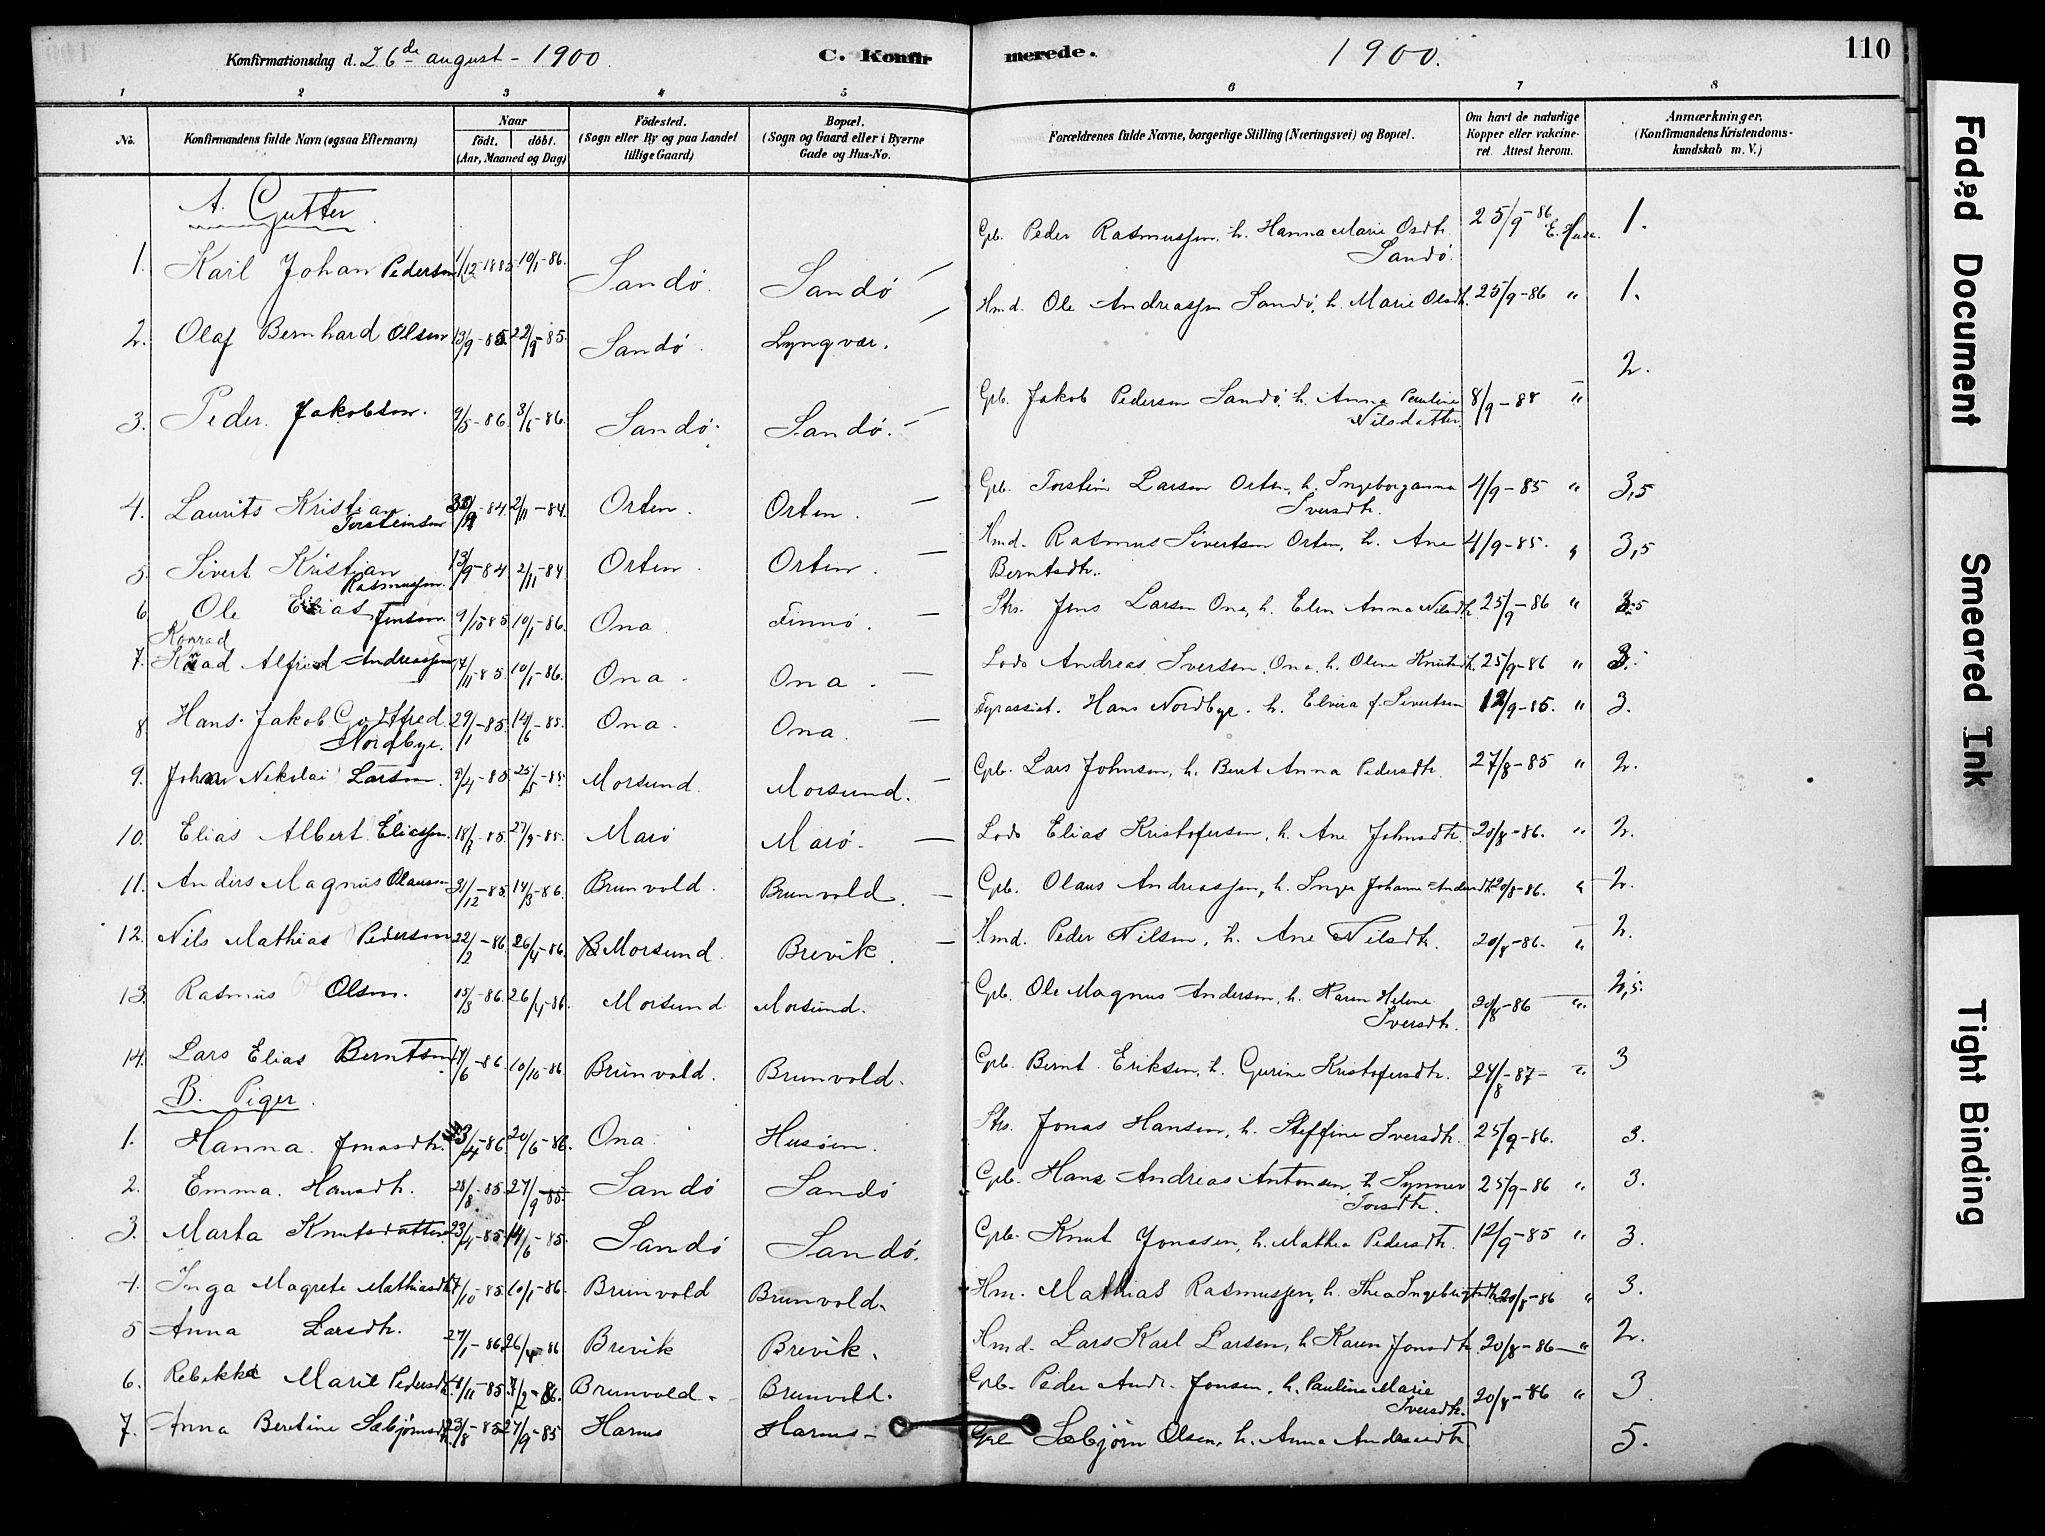 Konfirmationsdag d. 26de august - 1900. C. Konfirmerede. 1900. 110
1 2 3 4 5 6 7 8
No.
Konfirmandens fulde Navn (ogsaa Efternavn)
Naar
født. døbt.
(Aar, Maaned og Dag)
Fødested.
(Sogn eller By og paa Landet
tillige Gaard)
Bopæl.
(Sogn og Gaard eller i Byerne
Gade og Hus-No.
Forældrenes fulde Navne, borgerlige Stilling (Næringsvei) og Bopæl.
Om havt de naturlige
Kopper eller vakcine-
ret. Attest herom.
Anmærkninger.
(Konfirmandens Kristendoms-
kundskab m. V.)
A. Gutter
1. Karl Johan Pedersen 1/12-1885. 10/1-86. Sandø Sandø Gbr. Peder Rasmussen, h. Hanna Marie Osdtr. Sandø. 25/9-86 1.
2. Olaf Bernhard Olsen 13/9-85. 22/9-85. Sandø Lyngvær. Hmd. Ole Andreassen Sandø, h. Marie Olsdtr. 25/9-86 " 1.
3. Peder Jakobsen. 9/5-86. 3/6-86. Sandø Sandø. Gbr. Jakob Pedersen Sandø, h. Anna Pauline Nilsdatter 8/9-88 " 2.
4. Laurits Kristian Torsteinsen -84. 2/11-84. Orten. Orten. Gbr. Torstein Larsen Orten, h. Ingeborganna Iversdtr. 4/9-85 " 3,5
5. Sivert Kristian Rasmussen. 13/9-84 2/11-84 Orten Orten. Hmd. Rasmus Sivertsen Orten, h. Ane Berntsdtr. 4/9-85. " 3,5
6. Ole Elias Jensen. 9/10 85. 10/1-86. Ona Finnø. Strs. Jens Larsen Ona, h. Elen Anna Nilsdtr. 25/9-86 "
7. Konrad Alfred Andreassen 17/11-85. 10/1-86. Ona Ona. Lods Andreas Iversen Ona, h. Oline Knutsdtr. 25/9-86 " 3.
8 Hans Jakob Godtfred Nordbye. 29/1-85. 14/6-85. Ona. Ona. Fyrassist. Hans Nordbye. h. Elvira f. Sivertsen 12/9-85. " 3.
9. Johan Nikolai Larsen. 9/4-85 25/5-85. Morsund. Morsund. Gbr. Lars Johnsen, h. Beret Anna Pedersdtr. 27/8-85 " 2.
10. Elias Albert Eliassen. 18/7-85. 27/9-85. Marø Marø. Lods Elias Kristofersen, h. Ane Johnsdtr. 20/8-86. " 2.
11. Anders Magnus Olaussen 21/12-85. 14/3-86. Brunvold. Brunvold. Gbr. Olaus Andreassen, h. Inger Johanne Andersdtr. 20/8-86. " 2.
12. Nils Mathias Pedersen 22/2-86. 26/4-86. Morsund. Brevik. Hmd. Peder Nilsen, h. Ane Nilsdtr. 20/8-86. " 2.
13. Rasmus Olsen. 15/3-86. 26/4-86. Morsund Morsund. Gbr. Ole Magnus Andersen, h. Karen Helene Iversdtr. 20/8-86 " 2,5.
14. Lars Elias Berntsen 17/6-86. 10/10-86. Brunvold. Brunvold. Gbr. Bernt Eriksen, h. Gurine Kristofersdtr. 24/8-87- " 3
B. Piger.
1. Hanna Jonasdtr. 23/4-86. 20/6-86. Ona Husøen. Strs. Jonas Hansen, h. Steffine Iversdtr. 25/9-86. 3.
2. Emma Hansdtr. 28/8-85. 27/9-85. Sandø Sandø Gbr. Hans Andreas Antonsen, h. Synnev Torsdtr. 25/9-86 " 3.
3. Marta Knutsdatter 23/4-85. 14/6-85. Sandø Sandø. Gbr. Knut Jonasen, h. Mathea Pedersdtr. 12/9-85 " 3.
4. Inga Magrete Mathiasdtr. 17/10-85. 10/1-86. Brunvold Brunvold. Hm. Mathias Rasmussen, h. Thea Ingebrigtsdtr. 20/8-86 " 3.
5 Anna Larsdtr. 27/1-86. 26/4-86 Brevik Brevik. Hmd. Lars Karl Larsen, h. Karen Jonsdtr. 20/8-86 " 2.
6. Rebekka Marie Pedersdtr. 4/11-85. 7/2-86. Brunvold. Brunvold. Gbr. Peder Andr. Jonsen, h. Pauline Marie Iversdtr. 20/8-86 " 3.
7. Anna Beretine Sæbjørnsdtr. 23/8-85. 27/9-85 Harnes Harnes Gbr. Sæbjørn Olsen, h. Anna Andreasdtr. 5.
Faded Document
Smeared Ink
Tight Binding